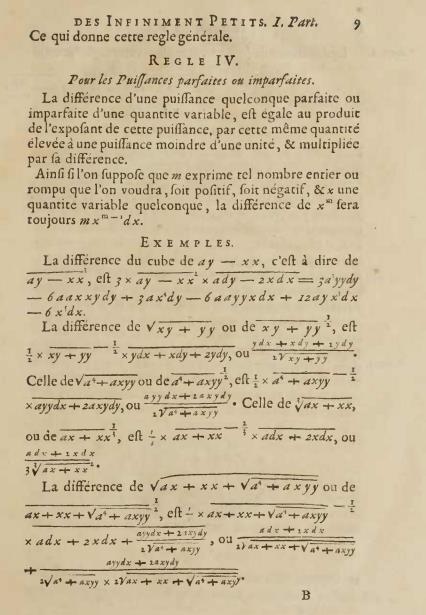 DES INFINIMENT PETITS. I. Part. 9
Ce qui donne cette regle générale.
REGLE IV.
Pour les Puissances parfaites ou imparfaites.
La différence d'une puissance quelconque parfaite ou
imparfaite d'une quantité variable, est égale au produit
de l'exposant de cette puissance, par cette même quantité
élevée à une puissance moindre d'une unité, & multipliée
par sa différence.
Ainsi si l'on suppose que m exprime tel nombre entier ou
rompu que l'on voudra, soit positif, soit négatif, & x une
quantité variable quelconque, la différence de xᵐ sera
toujours m xᵐ⁻¹ dx.
EXEMPLES.
La différence du cube de ay — xx, c'est à dire de
ay — xx³, est 3 × ay — xx² × ady — 2xdx = 3a³yydy
— 6aaxxydy + 3ax⁴dy — 6aayyxdx + 12ayx³dx
— 6x⁵dx.
La différence de √xy + yy ou de xy + yy ½, est
½ × xy + yy —½ × ydx + xdy + 2ydy, ou ydx + xdy + 2ydy / 2√xy + yy.
Celle de √a⁴ + axyy ou de a⁴ + axyy½, est ½ × a⁴ + axyy —½
× ayydx + 2axydy, ou ayydx + 2axydy / 2√a⁴ + axyy. Celle de ∛ax + xx,
ou de ax + xx⅓, est ⅓ × ax + xx —⅔ × adx + 2xdx, ou
adx + 2xdx / 3∛ax + xx².
La différence de √ax + xx + √a⁴ + axyy ou de
ax + xx + √a⁴ + axyy ½, est ½ × ax + xx + √a⁴ + axyy —½
× adx + 2xdx + ayydx + 2axydy / 2√a⁴ + axyy, ou adx + 2xdx / 2√ax + xx + √a⁴ + axyy
+ ayydx + 2axydy / 2√a⁴ + axyy × 2√ax + xx + √a⁴ + axyy.
B